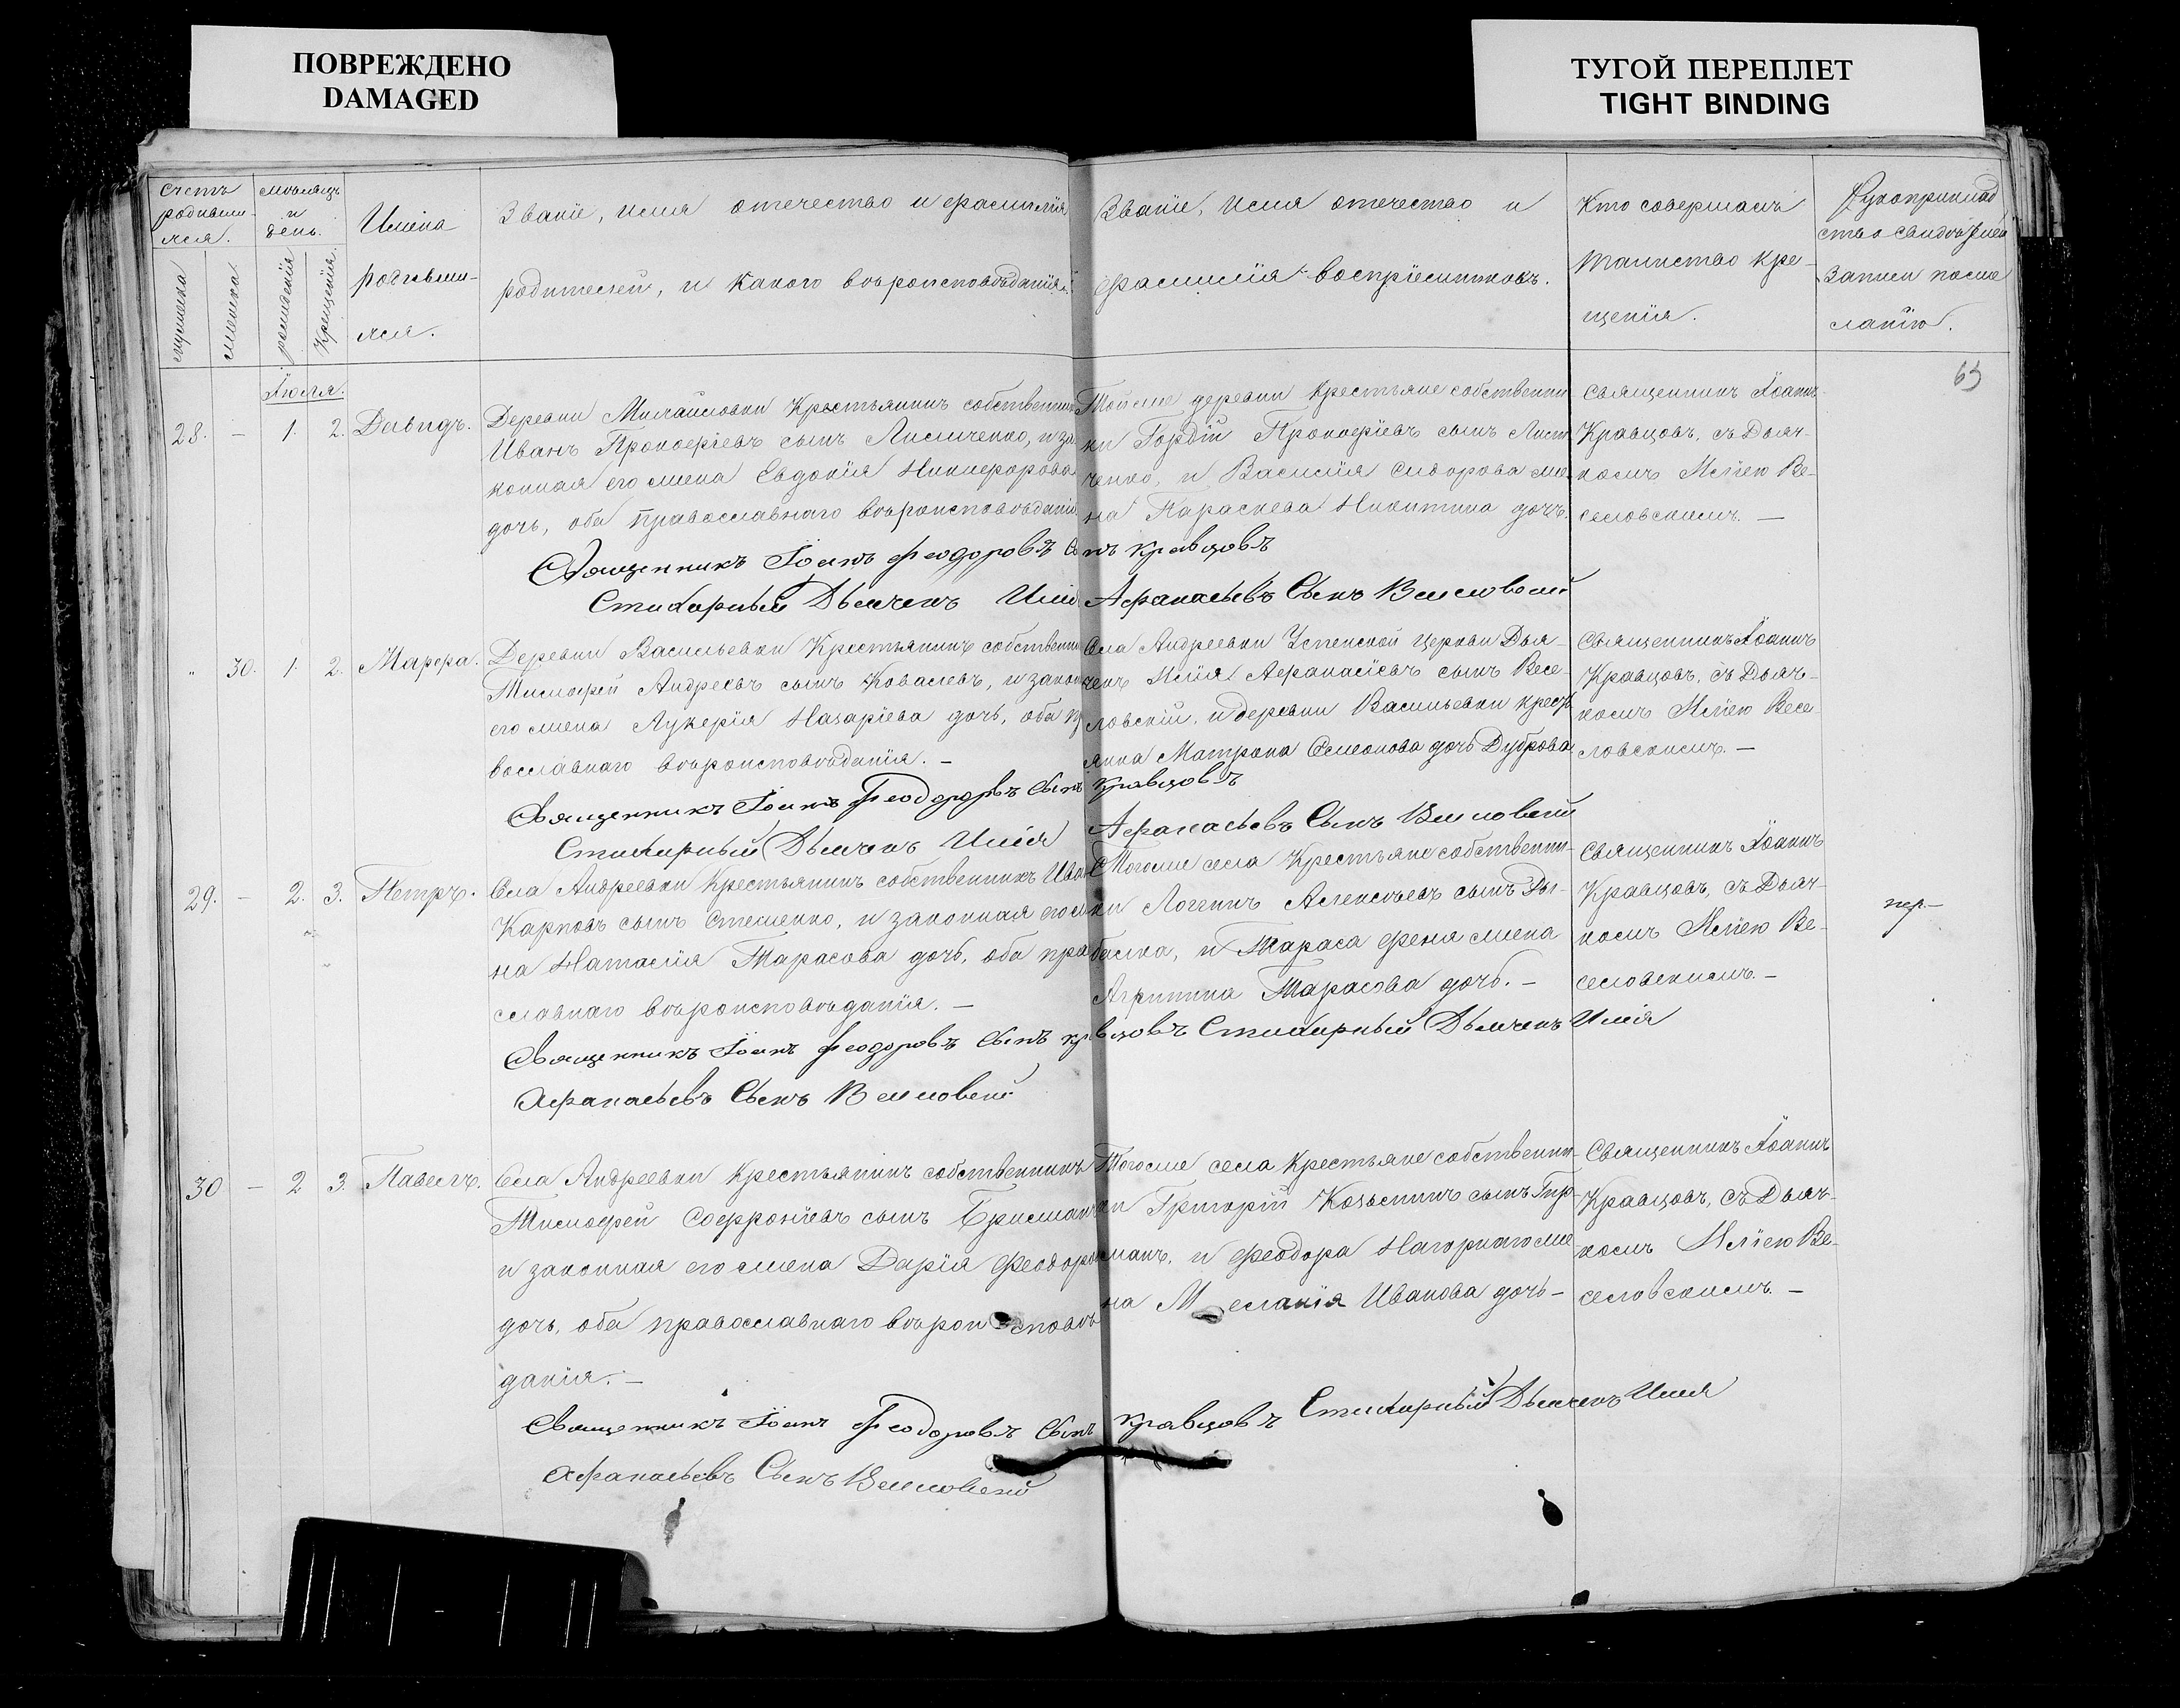 ПОВРЕЖДЕНО
DAMAGED
ТУГОЙ ПЕРЕПЛЕТ
TIGHT BINDING
Счетъ родивши-
хся.
мужеска
женска
мѣсяцъ и день.
рожденія
крещенія
Имена
родивши-
хся.
Званіе, имя отечество и фамилія
родителей, и какого вѣроисповѣданія.
Званіе, имя отечество и
фамилія воспріемниковъ.
Кто совершалъ
таинство кре-
щенія.
Рукоприклад
ство свидѣтелей
записи по же
ланію.
63
Іюля.
28. – 1. 2. Давидъ.
Деревни Михайловки Крестьянинъ собственни
Иванъ Прокофіевъ сынъ Лисиченко, и за
конная его жена Евдокія Никифорова
дочь, оба православнаго вѣроисповѣданія
Той же деревни крестьяне собственни
ки Гордій Прокофіевъ сынъ Лиси
ченко, и Василія Сидорова же
на Параскева Никитина дочь.
Священникъ Іоаннъ
Кравцовъ, съ Дьяч-
комъ Иліею Ве-
селовскимъ. –
Священникъ Іоанъ Феодоровъ Сынъ Кравцовъ
Стихарный Дьячекъ Илія Афанасьевъ Сынъ Веселовскій
" 30. 1. 2. Марфа.
Деревни Васильевки Крестьянинъ собственни
Тимофей Андреевъ сынъ Ковалевъ, и закон
его жена Лукерія Назаріева дочь, оба пр
вославнаго вѣроисповѣданія. –
Села Андреевки Успенской церкви Дья-
чекъ Илія Афанасіевъ сынъ Весе-
ловскій, и деревни Васильевки крестья
янка Матрона Семеонова дочь Дуброва
Священникъ Іоаннъ
Кравцовъ, съ Дьяч-
комъ Иліею Весе-
ловскимъ. –
Священникъ Іоанъ Феодоровъ Сынъ Кравцовъ
Стихарный Дьячекъ Илія Афанасьевъ Сынъ Веселовскій
29. – 2. 3. Петръ.
Села Андреевки Крестьянинъ собственникъ Иван
Карповъ сынъ Стешенко, и законная его же
на Наталія Тарасова дочь, оба пра
славнаго вѣроисповѣданія. –
Тогоже села Крестьяне собственни-
ки Логгинъ Алексѣевъ сынъ Ры-
балка, и Тараса жена
Агрипина Тарасова дочь. –
Священникъ Іоаннъ
Кравцовъ, съ Дьяч-
комъ Иліею Ве-
селовскимъ. –
Священникъ Іоанъ Феодоровъ Сынъ Кравцовъ Стихарный Дьячекъ Илія
Афанасьевъ Сынъ Веселовскій
30 – 2 3. Павелъ.
Села Андреевки Крестьянинъ собственникъ
Тимофей Софроніевъ сынъ
и законная его жена Дарія Феодоро
дочь, оба православнаго вѣроисповѣ
данія. –
Тогоже села Крестьяне собственни-
ки Григорій Козьминъ сынъ
и Феодора Нагорнаго же
на Меланія Иванова дочь –
Священникъ Іоаннъ
Кравцовъ, съ Дьяч-
комъ Иліею Ве-
селовскимъ. –
Священникъ Іоанъ Феодоровъ Сынъ Кравцовъ Стихарный Дьячекъ Илія
Афанасьевъ Сынъ Веселовскій